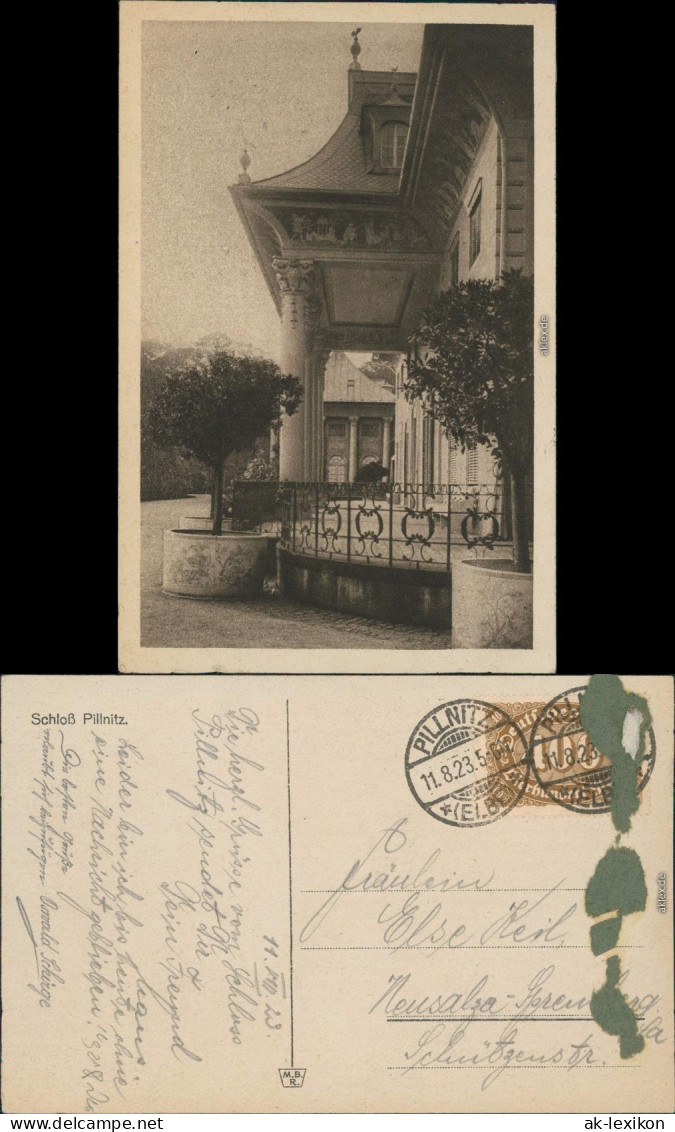 aklex.de
Schloß Pillnitz.
PILLNITZ
11.8.23.5-6N
*(ELBE)
100
11.8.23
(ELBE)
11. VIII. 23.
Die herzl. Grüsse vom Schloss
Pillnitz sendet Dir
Dein Freund
Hans
Leider bin ich bis heute ohne
eine Nachricht geblieben.
Die besten Grüße
erlaubt sich beizufügen
Fräulein
Else Keil
Neusalza-Spremberg
Schützenstr.
M.B.
R.
aklex.de
ak-lexikon